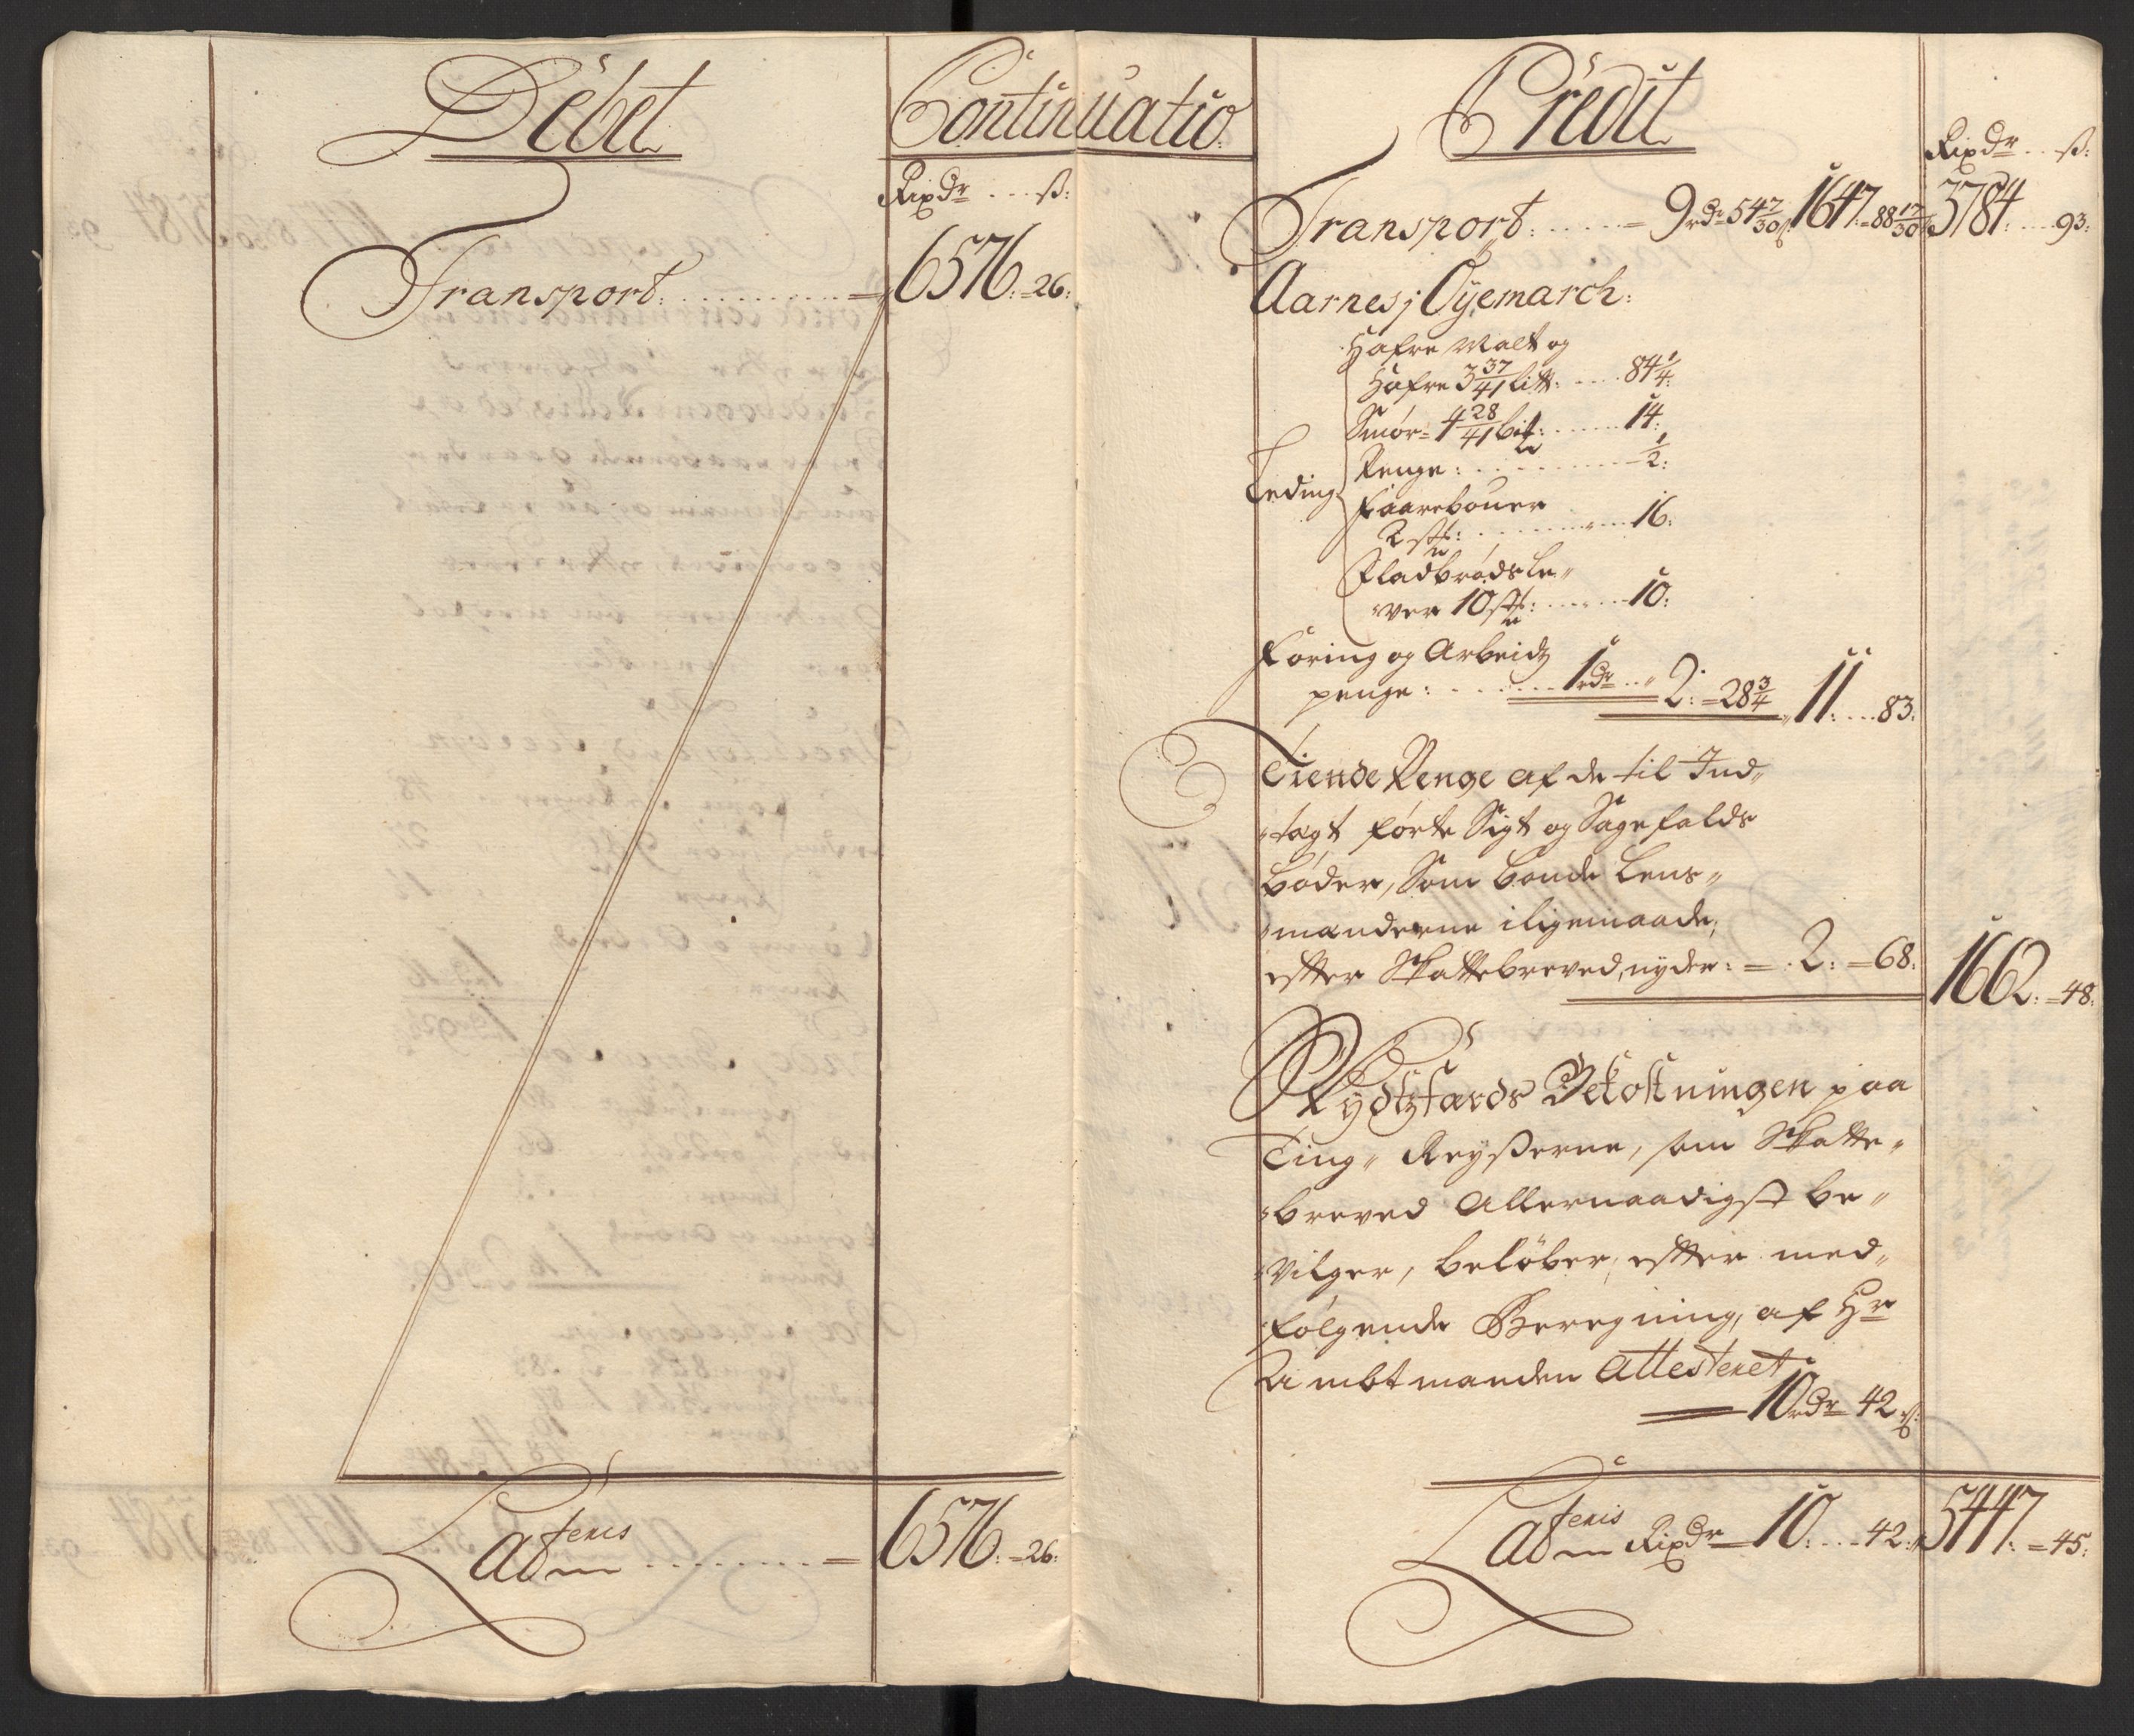 Debet
Continuatio
Rixdr ... ß:
Transport: ......... = 6576: = 26:
Lateris ........ = 6576: = 26:
Credit
Rixdr .. ß:
Transport: ...... = 9rdr 54 7/30 ß 1647 = 88 17/30 3784: ... 93:
Aarnes j Öyemarch:
Hafre Malt og
Hafre 3 37/41 litt: .... 84 1/4:
Smör = 4 28/41 bit: ...... 14:
Leding
Penge: ......... 1/2:
Faarebouer
2 st: ......... 16:
Fladbröds Le„
„ver 10 st: ...... 10:
Foring og Arbeidz
penge: ...... 1rdr .. „ 2: = 28 3/4 „ 11: ... 83:
Tiende Penge af de til Ind„
„tagt förte Sigt og Sagefalds
böder, Som bonde Lens„
„mænderne iligemaade,
efter Skattebreved, nyder: = 2: = 68:
1662: = 48:
Skydtzfærds Bekostningen paa
Ting„ Reyßerne, som Skatte„
„breved Allernaadigst be„
„vilger, belöber, efter med„
„fölgende Beregning, af Hr
Ambtmanden Attesteret
10rdr 42 ß:
Lateris Rixdr = 10: ... 42: 5447: = 45: